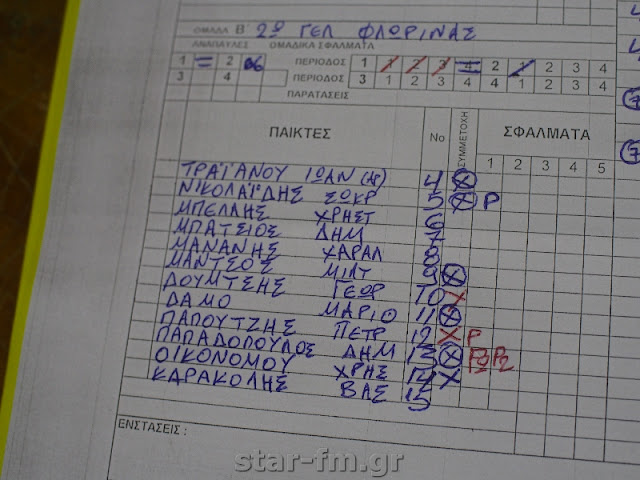 ΟΜΑΔΑ Β΄ 2ο ΓΕΛ ΦΛΩΡΙΝΑΣ
ΑΝΑΠΑΥΛΕΣ ΟΜΑΔΙΚΑ ΣΦΑΛΜΑΤΑ
1 2 ΠΕΡΙΟΔΟΣ 1 1 2 3 4 2 1 2 3 4
3 4 ΠΕΡΙΟΔΟΣ 3 1 2 3 4 4 1 2 3 4
ΠΑΡΑΤΑΣΕΙΣ
ΠΑΙΚΤΕΣ Νο ΣΥΜΜΕΤΟΧΗ ΣΦΑΛΜΑΤΑ
1 2 3 4 5
ΤΡΑΪΑΝΟΥ ΙΩΑΝ 4 X
ΝΙΚΟΛΑΪΔΗΣ ΣΩΚΡ 5 X P
ΜΠΕΛΛΗΣ ΧΡΗΣΤ 6
ΜΠΑΤΣΙΟΣ ΔΗΜ 7
ΜΑΝΑΝΗΣ ΧΑΡΑΛ 8
ΜΑΝΤΣΟΣ ΜΙΛΤ 9 X
ΔΟΥΜΤΣΗΣ ΓΕΩΡ 10 X
ΔΑΜΟ ΜΑΡΙΟ 11 X
ΠΑΠΟΥΤΖΗΣ ΠΕΤΡ 12 X P
ΠΑΠΑΔΟΠΟΥΛΟΣ ΔΗΜ 13 X P2 P2
ΟΙΚΟΝΟΜΟΥ ΧΡΗΣ 14 X
ΚΑΡΑΚΟΛΗΣ ΒΑΣ 15
ΕΝΣΤΑΣΕΙΣ :
star-fm.gr